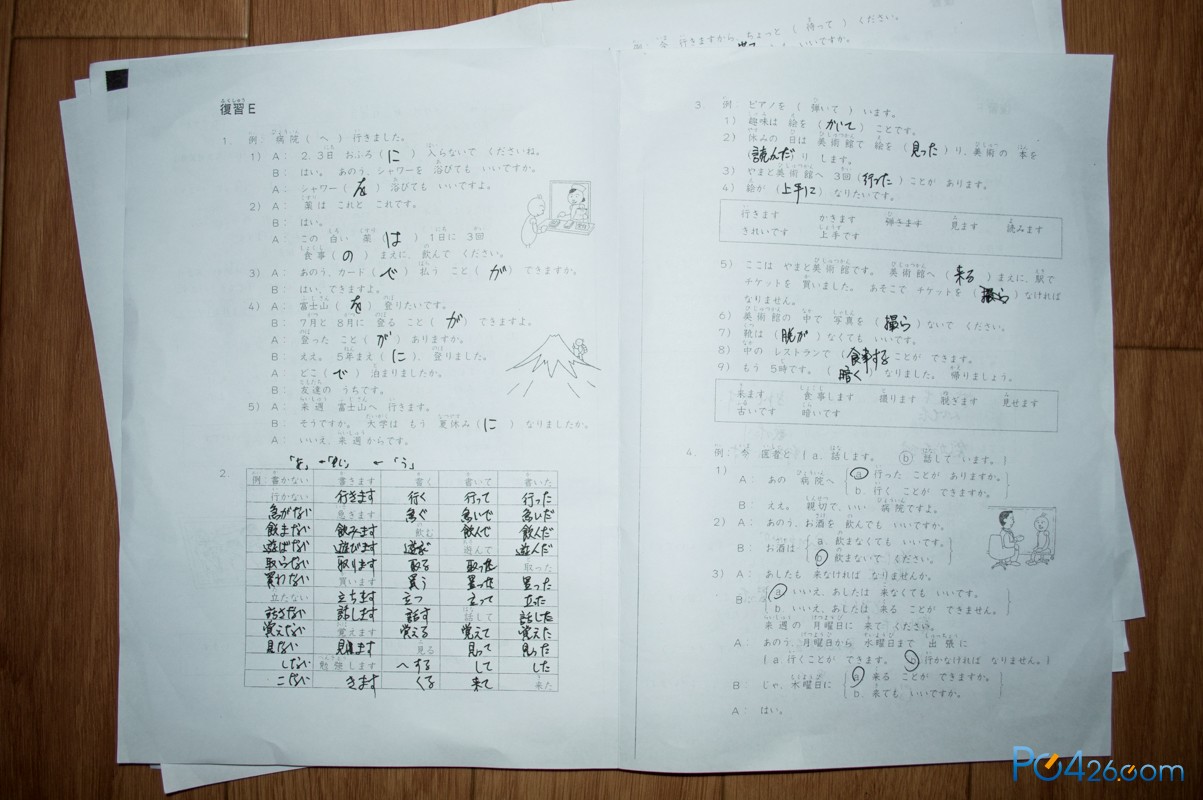 今 行きますから、ちょっと（ 待って ）ください。
いいですか。
ふくしゅう
復習 E
1. 例：病院（ へ ）行きました。
1） A： 2、3日 おふろ（ に ）入らないで くださいね。
B： はい。 あのう、シャワーを 浴びても いいですか。
A： シャワー（ を ）浴びても いいですよ。
2） A： 薬は これと これです。
B： はい。
A： この 白い 薬（ は ）1日に 3回
食事（ の ）まえに、飲んで ください。
3） A： あのう、カード（ で ）払う こと（ が ）できますか。
B： はい、できますよ。
4） A： 富士山（ を ）登りたいです。
B： 7月と 8月に 登る こと（ が ）できますよ。
A： 登った こと（ が ）ありますか。
B： ええ。 5年まえ（ に ）、登りました。
A： どこ（ で ）泊まりましたか。
B： 友達の うちです。
5） A： 来週 富士山へ 行きます。
B： そうですか。 大学は もう 夏休み（ に ）なりましたか。
A： いいえ、来週からです。
2.
例 書かない 書きます 書く 書いて 書いた
行かない 行きます 行く 行って 行った
急がない 急ぎます 急ぐ 急いで 急いだ
飲まない 飲みます 飲む 飲んで 飲んだ
遊ばない 遊びます 遊ぶ 遊んで 遊んだ
取らない 取ります 取る 取った 取った
買わない 買います 買う 買った 買った
立たない 立ちます 立つ 立って 立た
話さない 話します 話す 話して 話した
覚えない 覚えます 覚える 覚えて 覚えた
見ない 見ます 見る 見って 見った
しない 勉強します へする して した
こない きます くる 来て 来た
3. 例：ピアノを（ 弾いて ）います。
1） 趣味は 絵を（かいて）ことです。
2） 休みの 日は 美術館で 絵を（ 見った ）り、美術の 本を
（読んだ）り します。
3） やまと美術館へ 3回（行った）ことが あります。
4） 絵が（上手に）なりたいです。
行きます かきます 弾きます 見ます 読みます
きれいです 上手です
5） ここは やまと美術館です。 美術館へ（ 来る ）まえに、駅で
チケットを 買いました。 あそこで チケットを（ 撮ら ）なければ
なりません。
6） 美術館の 中で 写真を（ 撮ら ）ないで ください。
7） 靴は（ 脱が ）なくても いいです。
8） 中の レストランで（食事する）ことが できます。
9） もう 5時です。（ 暗く ）なりました。 帰りましょう。
来ます 食事します 撮ります 脱ぎます 見せます
古いです 暗いです
4. 例：今 医者と {a. 話します。 b. 話して います。}
1） A： あの 病院へ {a. 行った ことが ありますか。
b. 行く ことが できますか。}
B： ええ。 親切で、いい 病院ですよ。
2） A： あのう、お酒を 飲んでも いいですか。
B： お酒は {a. 飲まなくても いいです。
b. 飲まないで ください。}
3） A： あしたも 来なければ なりませんか。
B： {a. いいえ、あしたは 来なくても いいです。
b. いいえ、あしたは 来る ことが できません。}
来週の 月曜日に 来て ください。
A： あのう、月曜日から 水曜日まで 出張に
{a. 行くことが できます。 b. 行かなければ なりません。}
B： じゃ、木曜日に {a. 来る ことが できますか。
b. 来ても いいですか。}
A： はい。
PC426.com